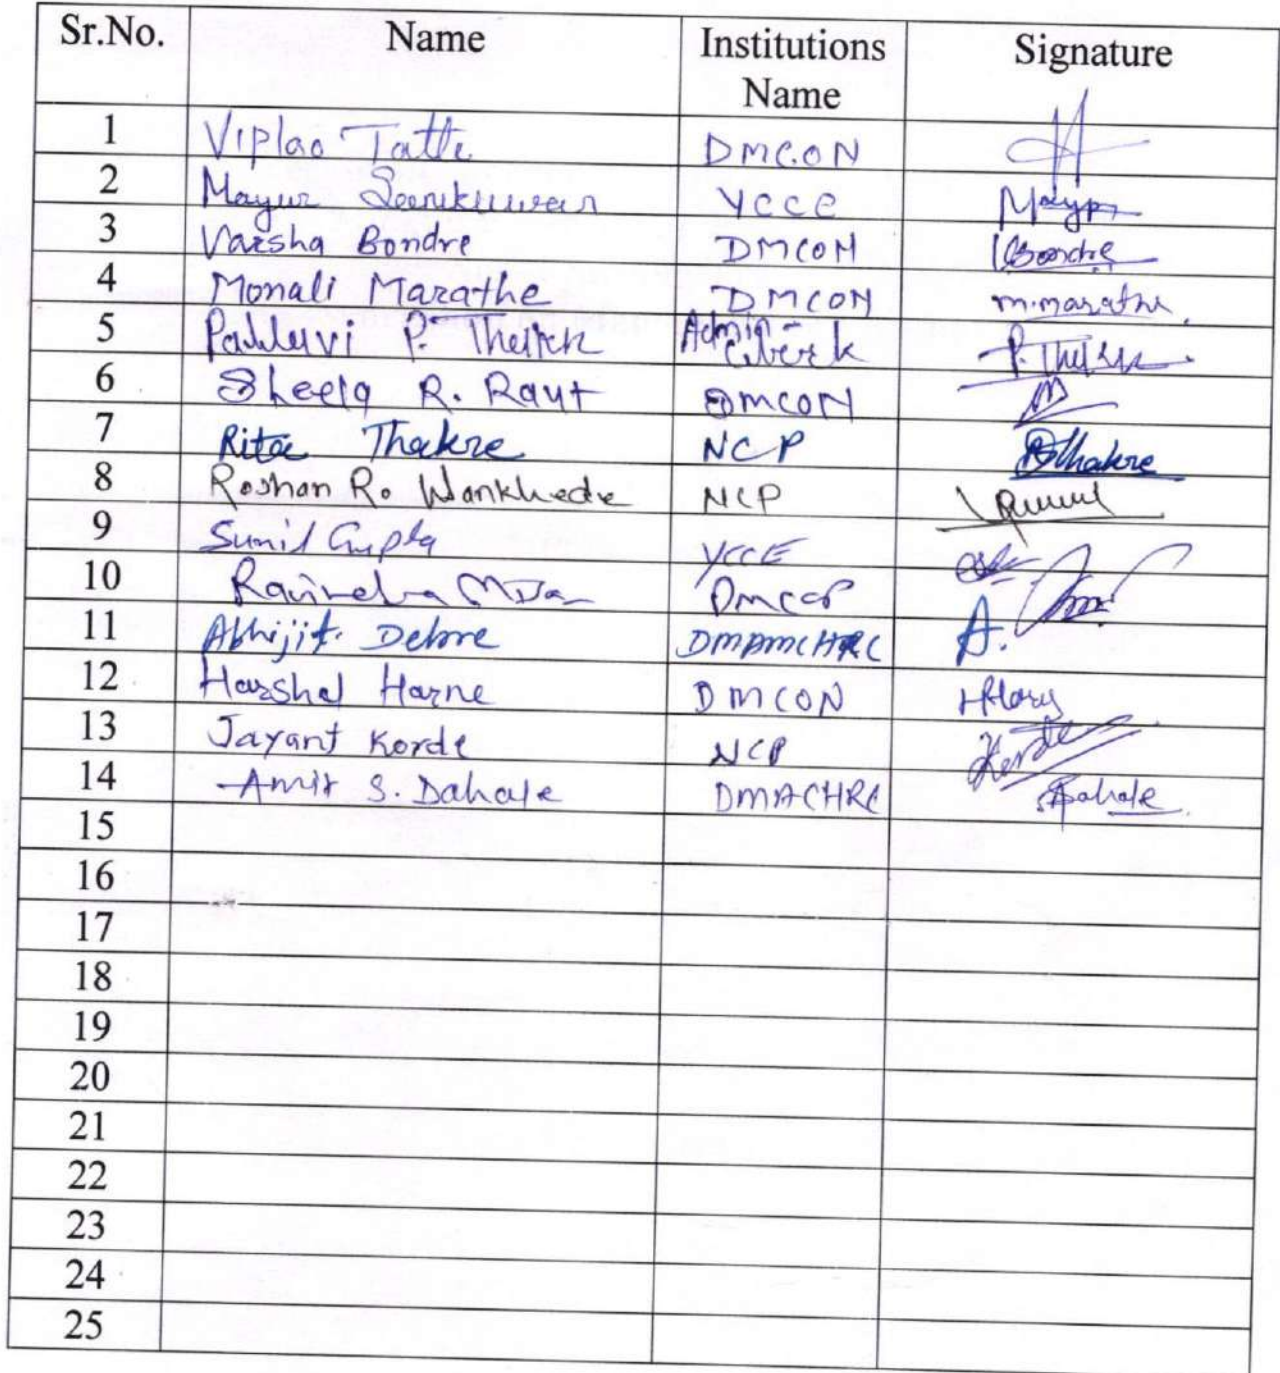 Sr.No. Name Institutions Name Signature
1 Viplao Tatte DMCON
2 Mayur YCCE
3 Varsha Bondre DMCON Bondre
4 Monali Marathe DMCON m.marathe
5 P. Admin - Clerk P.
6 Sheela R. Raut DMCON
7 Rita Thakre NCP Thakre
8 Roshan R. Wankhede NCP
9 Sunil Gupta YCCE
10
11 Abhijit. DMMCHRC A.
12 Harshal Harne DMCON
13 Jayant Korde NCP Korde
14 Amit S. Dahale DMACHRC Dahale
15
16
17
18
19
20
21
22
23
24
25